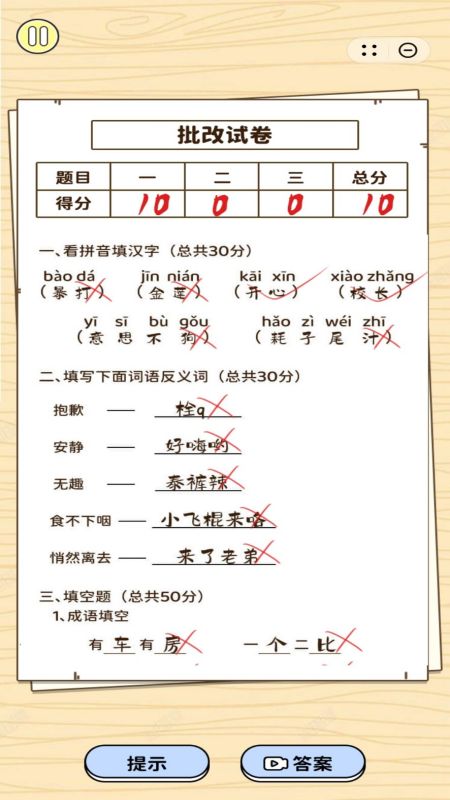 批改试卷
题目 一 二 三 总分
得分 10 0 0 10
一、看拼音填汉字（总共30分）
bào dá jīn nián kāi xīn xiào zhǎng
（暴打）（金莲）（开心）（校长）
yī sī bù gǒu hǎo zì wéi zhī
（意思不狗）（耗子尾汁）
二、填写下面词语反义词（总共30分）
抱歉 —— 栓q
安静 —— 好嗨哟
无趣 —— 泰裤辣
食不下咽 —— 小飞棍来咯
悄然离去 —— 来了老弟
三、填空题（总共50分）
1、成语填空
有车有房 一个二比
提示 答案